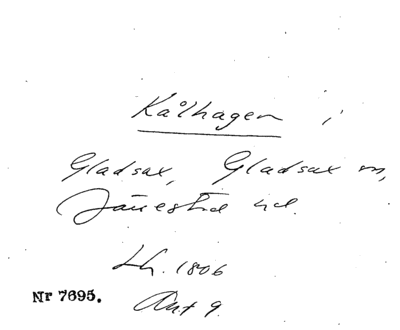 Kålhagen i
Gladsax, Gladsax sn,
Järrestad hd.
Lh. 1806
Nr 7695.
Akt 9.